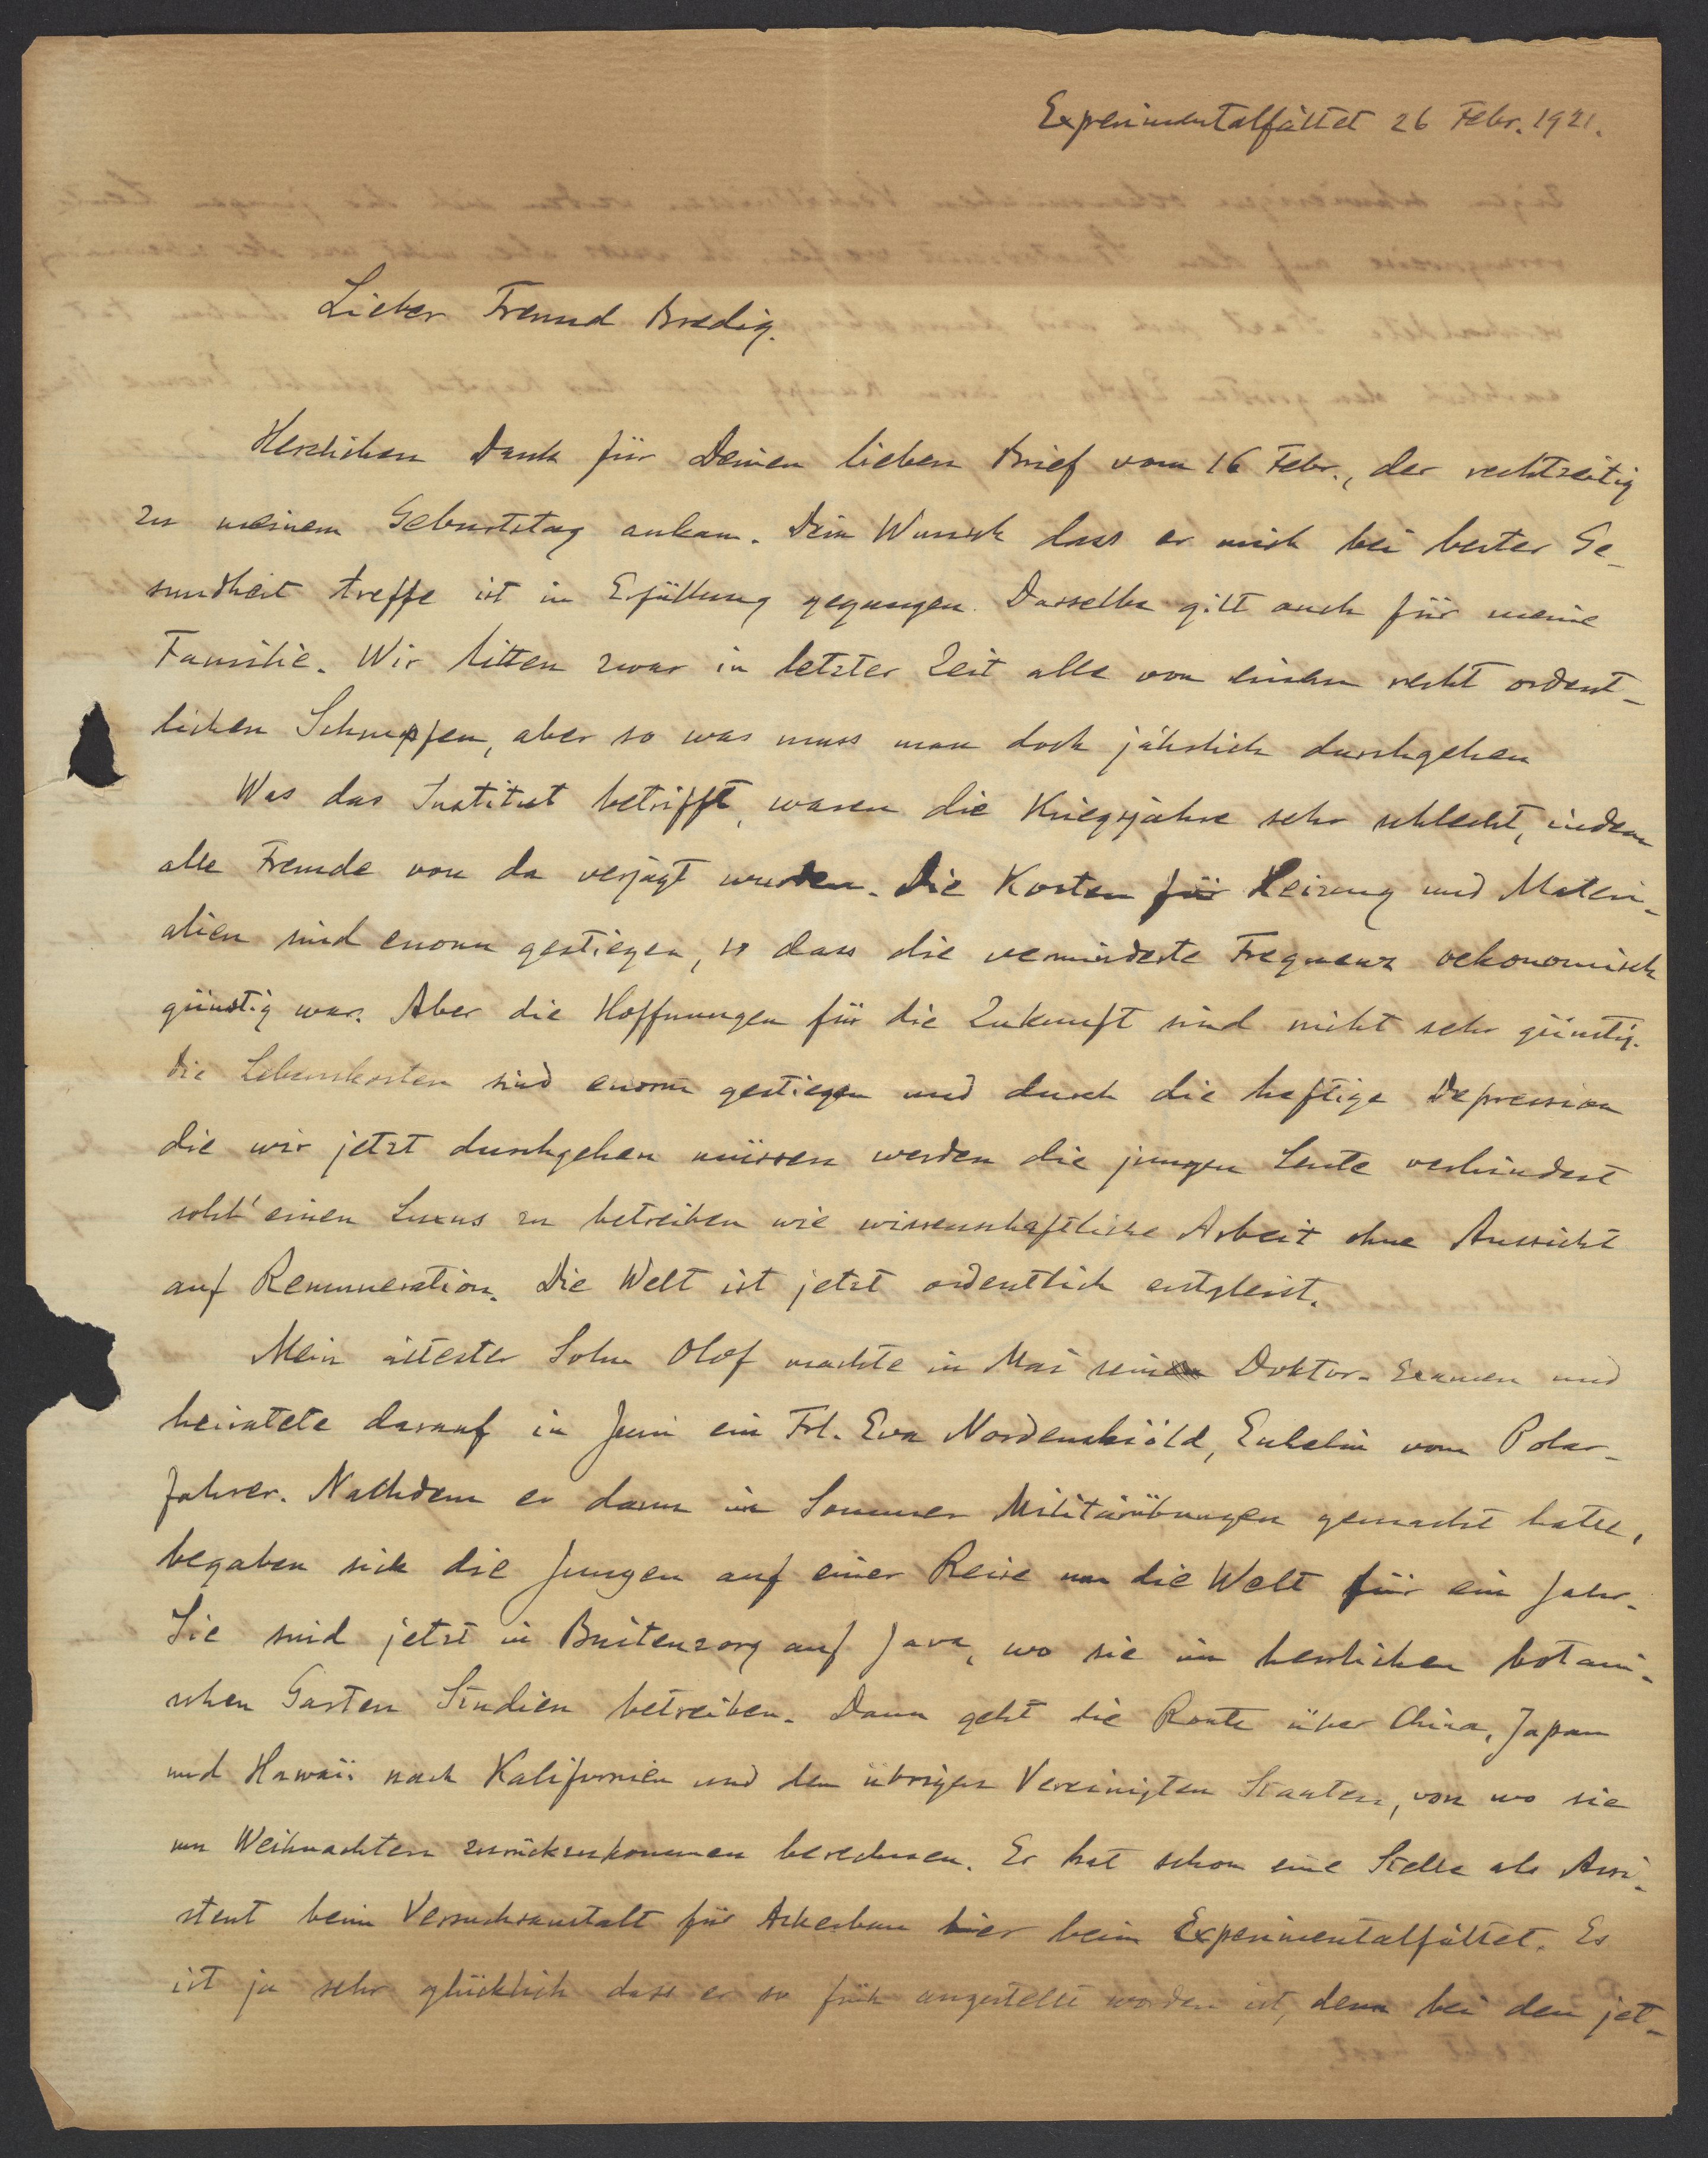 Experimentalfältet 26 Febr. 1921.
Lieber Freund Bredig.
Herzlichen Dank für Deinen lieben Brief vom 16 Febr., der rechtzeitig
zu meinem Geburtstag ankam. Dein Wunsch dass er mich bei bester Ge-
sundheit treffe ist in Erfüllung gegangen. Dasselbe gilt auch für meine
Familie. Wir litten zwar in letzter Zeit alle von einem recht ordent-
lichen Schnupfen, aber so was muss man doch jährlich durchgehen
Was das Institut betrifft, waren die Kriegsjahre sehr schlecht, indem
alle Fremde von da verjagt wurden. Die Kosten für Heizung und Materi-
alien sind enorm gestiegen, so dass die verminderte Frequenz oekonomisch
günstig war. Aber die Hoffnungen für die Zukunft sind nicht sehr günstig.
Die Lebenskosten sind enorm gestiegen und durch die heftige Depression
die wir jetzt durchgehen müssen werden die jungen Leute verhindert
solch' einen Luxus zu betreiben wie wissenschaftliche Arbeit ohne Aussicht
auf Remuneration. Die Welt ist jetzt ordentlich entgleist.
Mein ältester Sohn Olof machte in Mai sein Doktor-Examen und
heiratete darauf in Juni ein Frl. Eva Nordenskiöld, Enkelin vom Polar-
fahrer. Nachdem er dann im Sommer Militärübungen gemacht hatte,
begaben sich die Jungen auf einer Reise um die Welt für ein Jahr.
Sie sind jetzt in Buitenzorg auf Java, wo sie im herrlichen botani-
schen Garten Studien betreiben. Dann geht die Route über China, Japan
und Hawaii nach Kalifornien und den übrigen Vereinigten Staaten, von wo sie
um Weihnachten zurückzukommen berechnen. Er hat schon eine Stelle als Assi-
stent beim Versuchsanstalt für Ackerbau hier beim Experimentalfältet. Es
ist ja sehr glücklich dass er so früh angestellt worden ist, denn bei den jet-